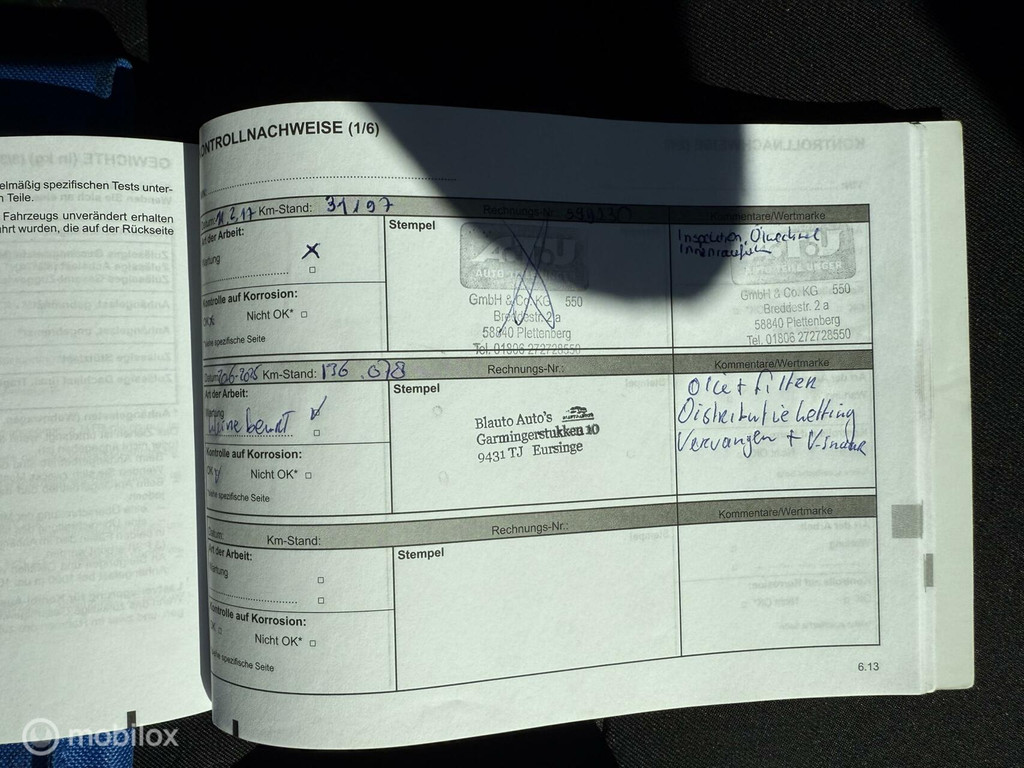 elmäßig spezifischen Tests unter-
n Teile.
Fahrzeugs unverändert erhalten
hrt wurden, die auf der Rückseite
GEWICHTE (in kg)
ONTROLLNACHWEISE (1/6)
Km-Stand: 31197
Rechnungs-Nr.
Kommentare/Wertmarke
Art der Arbeit:
Wartung
X
Kontrolle auf Korrosion:
Nicht OK*
*siehe spezifische Seite
Stempel
A.T.U
AUTO
GmbH & Co. KG 550
Breddestr. 2 a
58840 Plettenberg
Tel. 01806 272728550
Inspektion, Ölwechsel
A.T.U
AUTO TEILE UNGER
GmbH & Co. KG 550
Breddestr. 2 a
58840 Plettenberg
Tel. 01806 272728550
Km-Stand: 136.078
Rechnungs-Nr.:
Kommentare/Wertmarke
Art der Arbeit:
Wartung
kleine beurt
Kontrolle auf Korrosion:
OK
Nicht OK*
*siehe spezifische Seite
Stempel
Blauto Auto's
Garmingerstukken 10
9431 TJ Eursinge
Olie + filter
Distributieketting
Vervangen + V-snaar
Datum:
Km-Stand:
Rechnungs-Nr.:
Kommentare/Wertmarke
Art der Arbeit:
Wartung
Kontrolle auf Korrosion:
OK
Nicht OK*
*siehe spezifische Seite
Stempel
6.13
mobilox